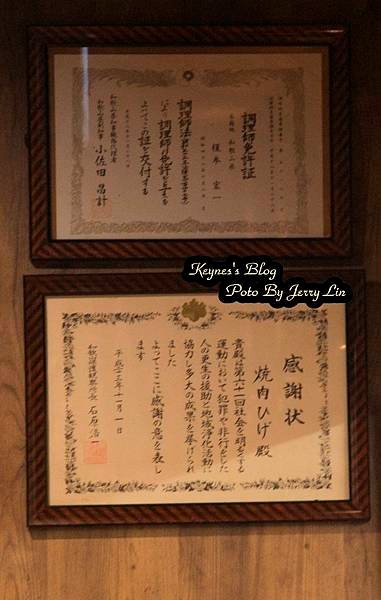 調理師免許証
本籍地 和歌山県
榎本 宏一
調理師法
により調理師の免許を与える
よってこの証を交付する
和歌山県知事職務代理者
和歌山県副知事 小佐田 昌計
Keynes's Blog
Poto By Jerry Lin
感謝状
焼肉ひげ殿
貴殿は第六十一回社会を明るくする
運動において犯罪や非行をした
人の更生の援助と地域浄化活動に
協力し多大の成果を挙げられ
ました
よってここに感謝の意を表し
ます
平成二十三年十一月一日
和歌山保護観察所長 石原 浩一